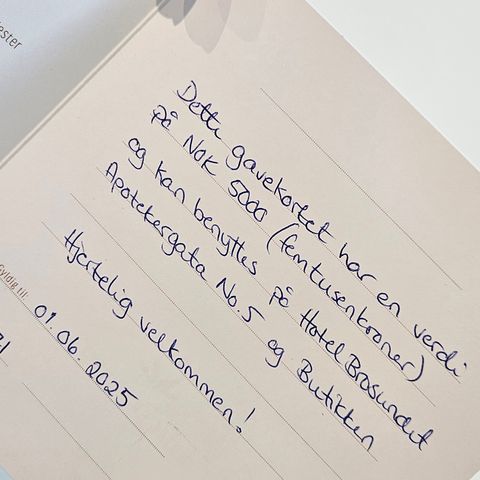 ester
Dette gavekortet har en verdi
på NOK 5000 (femtusenkroner)
og kan benyttes på Hotel Brosundet
Apotekergata No.5 og Butikken
Hjertelig velkommen!
Gyldig til:
01.06.2025